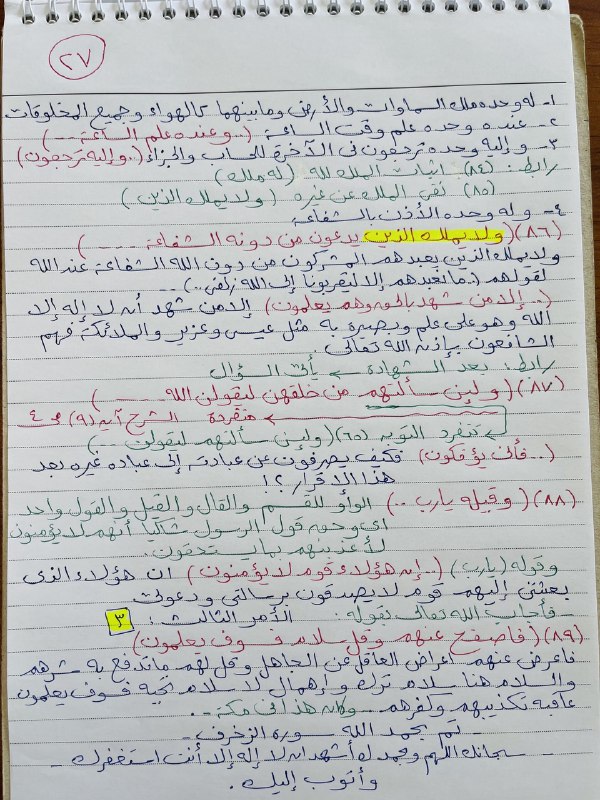 ٢٧
١- له وحده ملك السماوات والأرض وما بينهما كالهواء وجميع المخلوقات
٢- عنده وحده علم وقت الساعة (..وعنده علم الساعة ...)
٣- وإليه وحده ترجعون في الآخرة للحساب والجزاء (..وإليه ترجعون)
رابط: (٨٤) اثبات الملك لله (له ملك)
(٨٥) نفى الملك عن غيره (ولا يملك الذين)
٤- وله وحده الأذن بالشفاعة
(٨٦) (ولا يملك الذين يدعون من دونه الشفاعة ....)
ولا يملك الذين يعبدهم المشركون من دون الله الشفاعة عند الله
لقولهم (.ما نعبدهم إلا ليقربونا إلى الله زلفى..)...
(..إلا من شهد بالحق وهم يعلمون) إلا من شهد أنه لا إله إلا
الله وهو على علم وبصيرة به مثل عيسى وعزير والملائكة فهم
الشافعون بإذن الله تعالى.
رابط: بعد الشهادة ← يأتى السؤال
(٨٧) (ولئن سألتهم من خلقهن ليقولن الله ....)
متفردة الشرح آية (٩) ص ٤
تنفرد التوبة (٦٥) (ولئن سألتهم ليقولن ..)
(..فأنى يؤفكون) فكيف يصرفون عن عبادته إلى عبادة غيره بعد
هذا الاقرار؟!
(٨٨) (وقيله يارب ..) الواو للقسم والقال والقيل والقول واحد
اى وحق قول الرسول شاكيا أنهم لا يؤمنون
لأعذبنهم بما يستحقون.
وقوله (يارب) (..إن هؤلاء قوم لا يؤمنون) ان هؤلاء الذى
بعثتنى إليهم قوم لا يصدقون برسالتى ودعوتى
- فأجاب الله تعالى بقوله: الأمر الثالث: ٣
(٨٩) (فاصفح عنهم وقل سلام فسوف يعلمون)
فاعرض عنهم اعراض العاقل عن الجاهل وقل لهم ما تدفع به شرهم
والسلام هنا سلام ترك وإهمال لا سلام تحية فسوف يعلمون
عاقبة تكذيبهم وكفرهم - وكان هذا فى مكة..
- تم بحمد الله سورة الزخرف -
- سبحانك اللهم وبحمدك أشهد أن لا إله إلا أنت استغفرك -
وأتوب إليك.